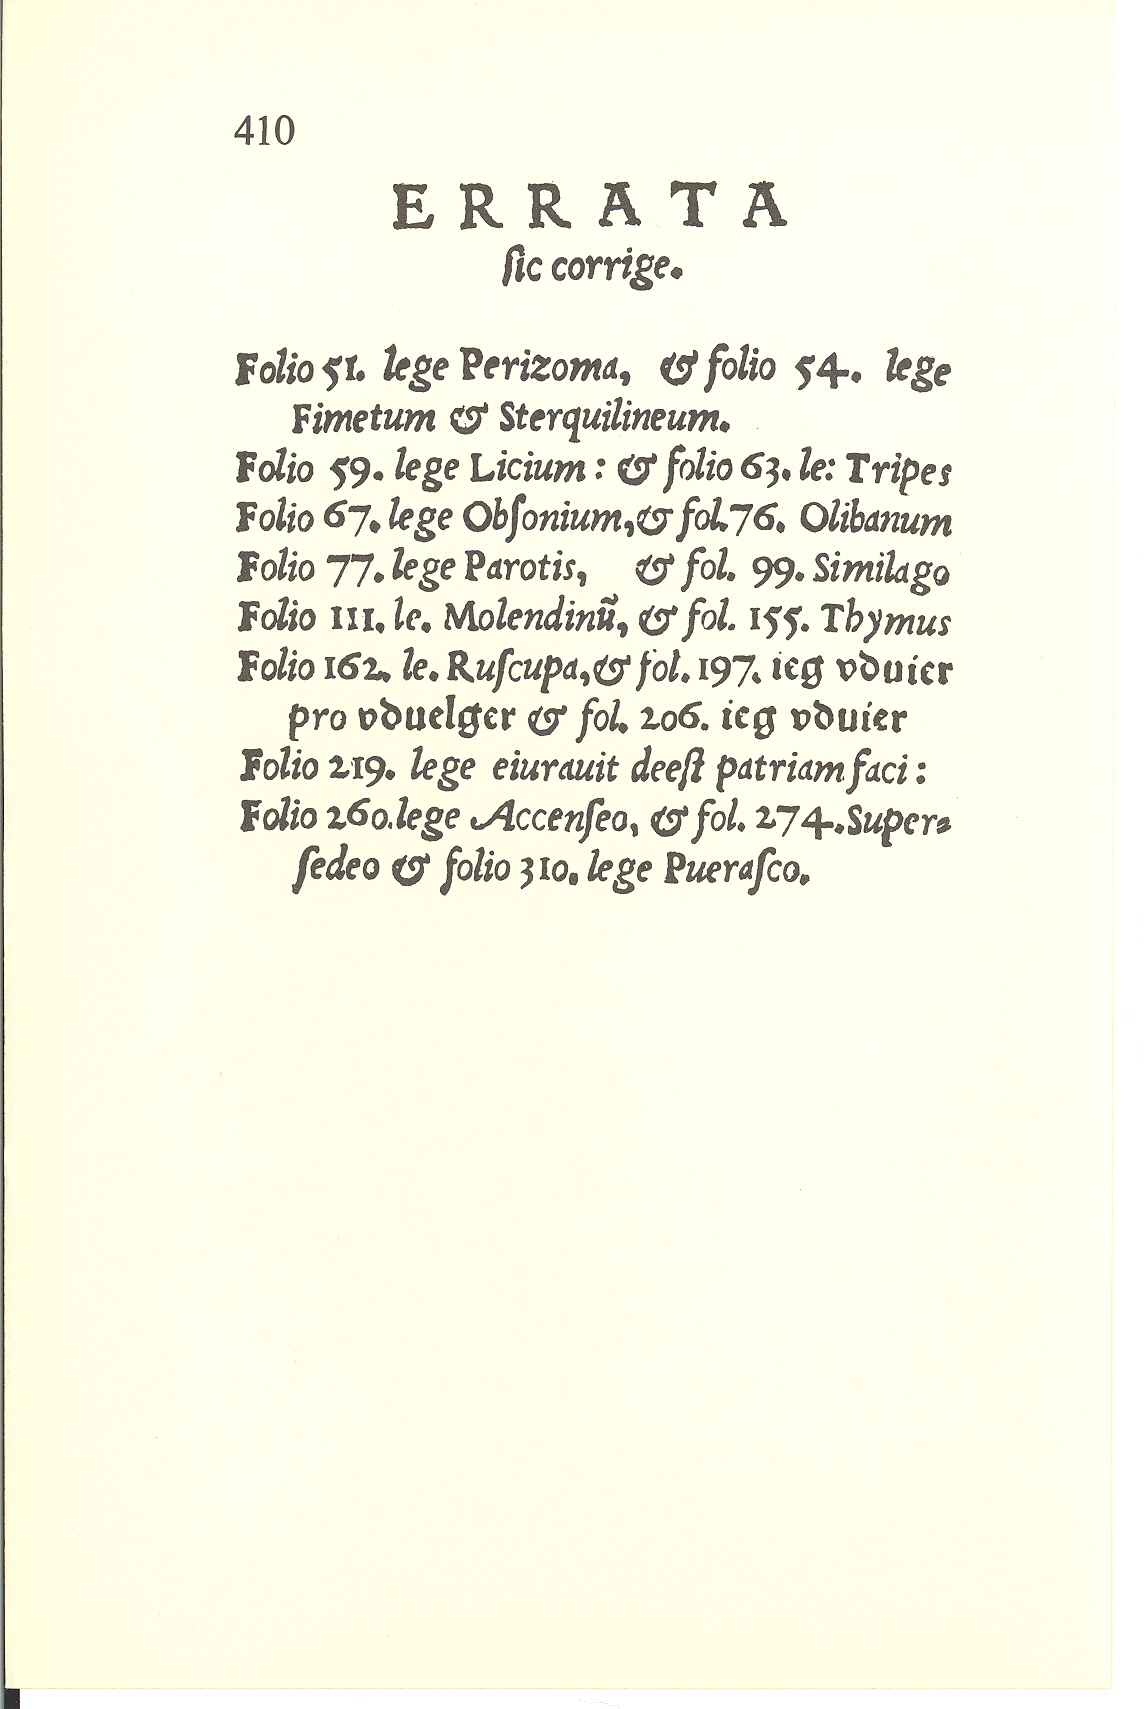 410
ERRATA
ſic corrige.
Folio 51. lege Perizoma, & folio 54. lege
Fimetum & Sterquilineum.
Folio 59. lege Licium : & folio 63. le: Tripes
Folio 67. lege Obſonium, & fol. 76. Olibanum
Folio 77. lege Parotis, & fol. 99. Similago
Folio 111. le. Molendinū, & fol. 155. Thymus
Folio 162. le. Ruſcupa, & fol. 197. ieg vduier
pro vduelger & fol. 206. ieg vduier
Folio 219. lege eiurauit deeſt patriam faci :
Folio 260. lege Accenſeo, & fol. 274. Super⸗
ſedeo & folio 310. lege Pueraſco.